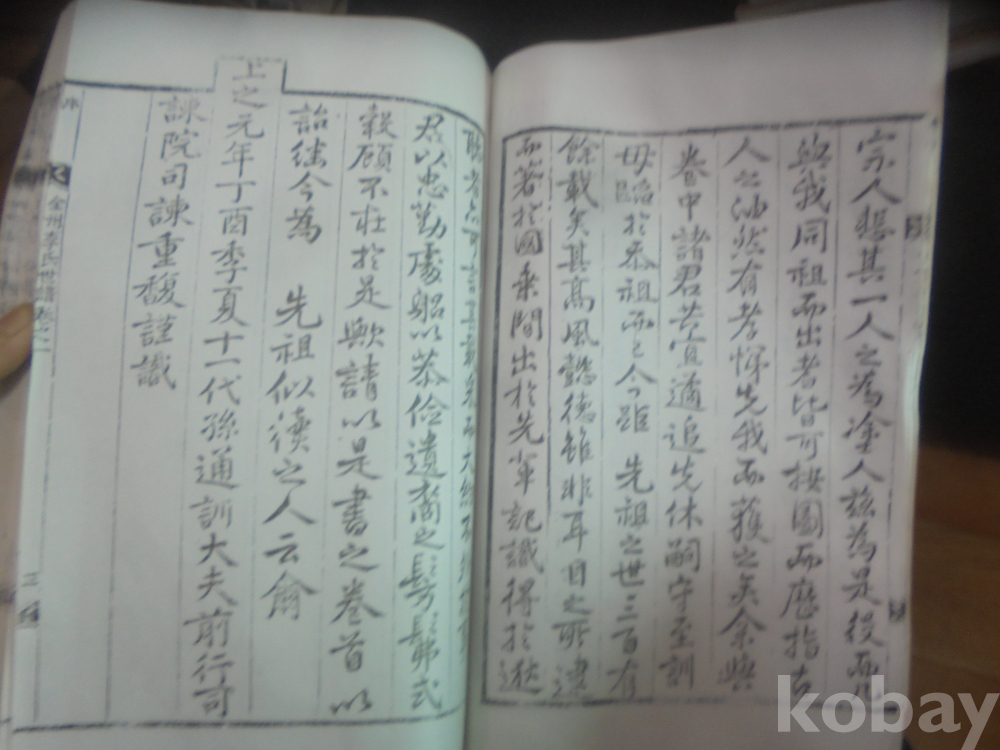 宗人悲其一人之爲塗人玆爲是役而凡
與我同祖而出者皆可按圖而歷指古
人之油然有孝悌先我而獲之矣余與
卷中諸君苦宜遹追先休嗣守至訓
毋陷於忝祖而已今雖 先祖之世三百有
餘載矣其高風懿德雖非耳目之所逮
而著於國乘間出於先輩記識得於逖
君以忠勤處躬以恭儉遺裔之髣髴式
穀顧不在於是歟請以是書之卷首以
詒继今爲 先祖似續之人云爾
上之元年丁酉季夏十一代孫通訓大夫前行司
諫院司諫重馥謹識
序
全州李氏世譜卷之一
三
kobay